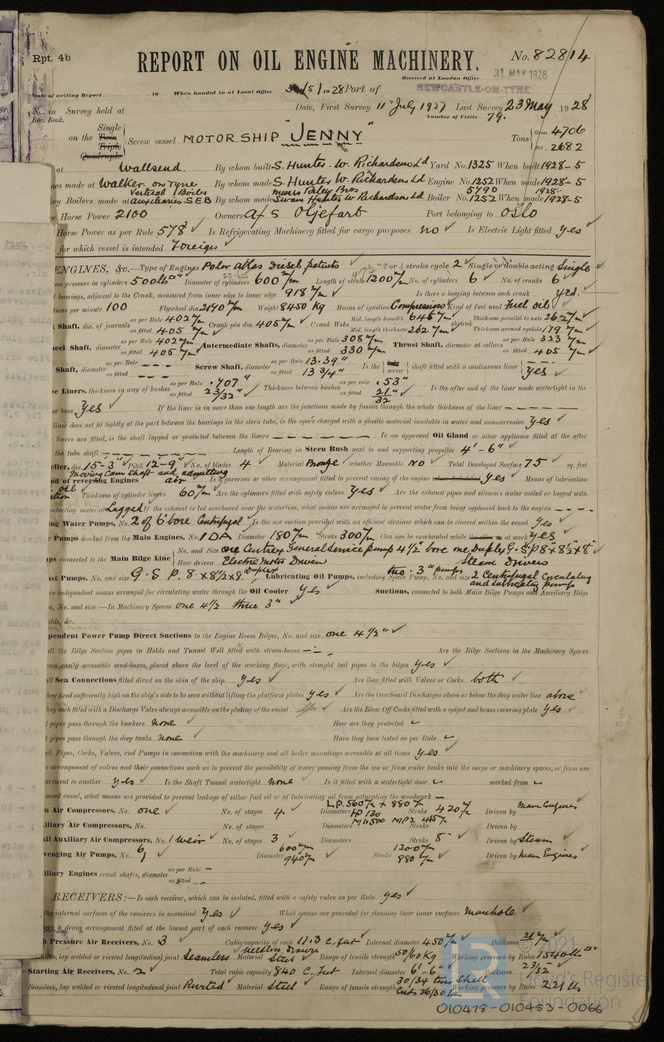 Rpt. 4b
REPORT ON OIL ENGINE MACHINERY.
No. 82814
Received at London Office
31 MAY 1928
Date of writing Report 19 When handed in at Local Office 1928 Port of NEWCASTLE-ON-TYNE
No. in Survey held at Date, First Survey 11th July 1927 Last Survey 23 May 1928
Reg. Book. Number of Visits 79.
on the Single Twin Triple Quadruple Screw vessel MOTOR SHIP "JENNY" Tons Gross 4706 Net 2682
at Wallsend. By whom built S. Hunter W. Richardson Ld Yard No. 1325 When built 1928-5
made at Walker on Tyne By whom made S. Hunter W. Richardson Ld Engine No. 1252 When made 1928-5
Boilers made at By whom made Swan Hunter W Richardson Ld Boiler No. 1252 When made 1928-5
Horse Power 2100 Owners Port belonging to Oslo
Horse Power as per Rule 578 Is Refrigerating Machinery fitted for cargo purposes no Is Electric Light fitted yes
for which vessel is intended Foreign
ENGINES, &c.—Type of Engines Polar Atlas Diesel patents 2 or 4 stroke cycle 2 Single or double acting Single
pressure in cylinders 500 lbs Diameter of cylinders 600 m/m Length of stroke 1200 m/m No. of cylinders 6 No. of cranks 6
bearings, adjacent to the Crank, measured from inner edge to inner edge 918 m/m Is there a bearing between each crank yes.
per minute 100 Flywheel dia. 2140 m/m Weight 8450 kg Means of ignition Compression Kind of fuel used Fuel oil
Shaft, dia. of journals as per Rule 402 m/m as fitted 405 m/m Crank pin dia. 405 m/m Crank Webs Mid. length breadth 646 m/m Mid. length thickness 262 m/m Thickness parallel to axis 262 m/m Thickness around eyehole 179 m/m
Wheel Shaft, diameter as per Rule 402 m/m as fitted 405 m/m Intermediate Shafts, diameter as per Rule 308 m/m as fitted 330 m/m Thrust Shaft, diameter at collars as per Rule 323 m/m as fitted 405 m/m
Shaft, diameter as per Rule as fitted Screw Shaft, diameter as per Rule 13.39" as fitted 13 3/4" Is the shaft fitted with a continuous liner yes
Liners, thickness in way of bushes as per Rule .707" as fitted 23/32" Thickness between bushes as per rule .53" as fitted 21/32 Is the after end of the liner made watertight in the
boss yes If the liner is in more than one length are the junctions made by fusion through the whole thickness of the liner
liner does not fit tightly at the part between the bearings in the stern tube, is the space charged with a plastic material insoluble in water and non-corrosive yes
liners are fitted, is the shaft lapped or protected between the liners Is an approved Oil Gland or other appliance fitted at the after
the tube shaft Length of Bearing in Stern Bush next to and supporting propeller 4'-6"
dia. 15-3" Pitch 12-9" No. of blades 4 Material Bronze whether Moveable NO Total Developed Surface 75 sq. feet
of reversing Engines moving cam shaft and admitting air Is a governor or other arrangement fitted to prevent racing of the engine yes Means of lubrication
oil Thickness of cylinder liners 60 m/m Are the cylinders fitted with safety valves yes Are the exhaust pipes and silencers water cooled or lagged with
material Lagged If the exhaust is led overboard near the waterline, what means are arranged to prevent water from being syphoned back to the engine
Water Pumps, No. 2 of 6" bore Centrifugal Is the sea suction provided with an efficient strainer which can be cleared within the vessel yes
Pumps worked from the Main Engines, No. 1 DA Diameter 180 m/m Stroke 300 m/m Can one be overhauled while yes
connected to Main Bilge Line No. and Size one Centrif General service pump 4 1/2 bore one Duplex G.S.P 8 x 8 1/2 x 8"
How driven Electric Motor Driven Steam Driven
Pumps, No. and size G.S.P. 8 x 8 1/2 x 8" Duplex Lubricating Oil Pumps, including Spare Pump, No. and size two 3" pumps 2 Centrifugal Circulating
independent means arranged for circulating water through the Oil Cooler yes Suctions, connected to both Main Bilge Pumps and Auxiliary Bilge
No. and size:—In Machinery Spaces one 4 1/2 three 3"
holds, &c.
Independent Power Pump Direct Suctions to the Engine Room Bilges, No. and size one 4 1/2"
all the Bilge Suction pipes in Holds and Tunnel Well fitted with strum-boxes Are the Bilge Suctions in the Machinery Spaces
from easily accessible mud-boxes, placed above the level of the working floor, with straight tail pipes to the bilges yes
all Sea Connections fitted direct on the skin of the ship yes Are they fitted with Valves or Cocks both
they fixed sufficiently high on the ship's side to be seen without lifting the platform plates yes Are the Overboard Discharges above or below the deep water line above
they each fitted with a Discharge Valve always accessible on the plating of the vessel Are the Blow Off Cocks fitted with a spigot and brass covering plate yes
pipes pass through the bunkers none How are they protected
pipes pass through the deep tanks none Have they been tested as per Rule
all Pipes, Cocks, Valves, and Pumps in connection with the machinery and all boiler mountings accessible at all times yes
arrangement of valves and their connections such as to prevent the possibility of water passing from the sea or from water tanks into the cargo or machinery spaces, or from one
compartment to another yes Is the Shaft Tunnel watertight none Is it fitted with a watertight door worked from
wood vessel, what means are provided to prevent leakage of either fuel oil or of lubricating oil from saturating the woodwork
Air Compressors, No. one No. of stages 4 Diameters LP. 560 m/m x 880 m/m HP 130 Stroke 420 m/m Driven by main Engines
Auxiliary Air Compressors, No. No. of stages Diameters Stroke Driven by
Small Auxiliary Air Compressors, No. 1 Weir No. of stages 3 Diameters Stroke 8" Driven by Steam
Scavenging Air Pumps, No. 6 Diameter 600 m/m 940 m/m Stroke 1200 m/m 880 m/m Driven by Main Engines
Auxiliary Engines crank shafts, diameter as per Rule as fitted
RECEIVERS:—Is each receiver, which can be isolated, fitted with a safety valve as per Rule yes
the internal surfaces of the receivers be examined yes What means are provided for cleaning their inner surfaces manhole
a drain arrangement fitted at the lowest part of each receiver yes
High Pressure Air Receivers, No. 3 Cubic capacity of each 11.3 C. feet Internal diameter 450 m/m thickness
lap welded or riveted longitudinal joint Seamless Material Steel Range of tensile strength Working pressure by Rules
Starting Air Receivers, No. 2 Total cubic capacity 840 C. feet Internal diameter 6'-6" thickness 23/32
Seamless, lap welded or riveted longitudinal joint Riveted Material Steel Range of tensile strength 30/34 tons shell Ends 26/30 tons Working pressure by Rules
© 2021
Lloyd's Register
Foundation
010478-010483-0066